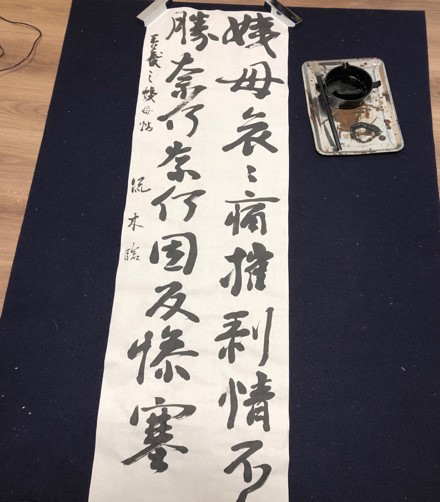 姨母哀〻痛摧剥情不
勝奈何奈何因反慘塞
王羲之姨母帖 木臨